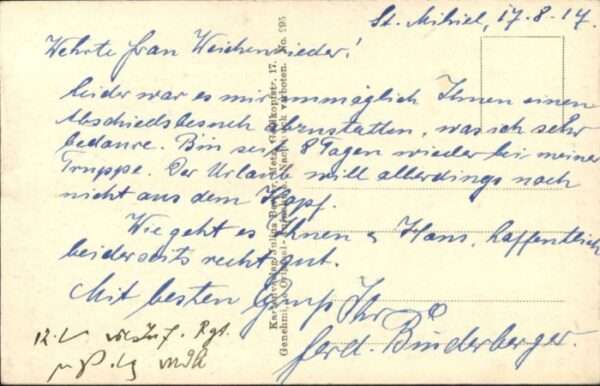 St. Mihiel, 17.8.17.
Wehrte frau Weichenrieder!
leider war es mir unmöglich Ihnen einen
Abschiedsbesuch abzustatten, was ich sehr
bedaure. Bin seit 8 Tagen wieder bei meiner
Truppe. Der Urlaub will allerdings noch
nicht aus dem Kopf.
Wie geht es Ihnen & Hans, hoffentlich
beiderseits recht gut.
Mit besten Gruß Ihr
ferd. Binderberger.
Rgt.
Metz, Goldkopfstr. 17.
Nachdruck verboten. No. 295